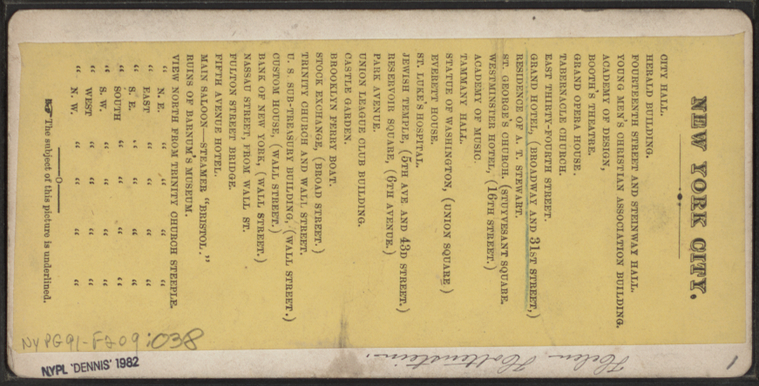 NEW YORK CITY.
CITY HALL.
HERALD BUILDING.
FOURTEENTH STREET AND STEINWAY HALL.
YOUNG MEN'S CHRISTIAN ASSOCIATION BUILDING.
ACADEMY OF DESIGN,
BOOTH'S THEATRE.
GRAND OPERA HOUSE.
TABERNACLE CHURCH.
EAST THIRTY-FOURTH STREET.
GRAND HOTEL, (BROADWAY AND 31ST STREET,)
RESIDENCE OF A. T. STEWART.
ST. GEORGE'S CHURCH, (STUYVESANT SQUARE.
WESTMINSTER HOTEL, (16TH STREET.)
ACADEMY OF MUSIC.
TAMMANY HALL.
STATUE OF WASHINGTON, (UNION SQUARE)
EVERETT HOUSE.
ST. LUKE'S HOSPITAL.
JEWISH TEMPLE, (5TH AVE. AND 43D STREET.)
RESERVOIR SQUARE, (6TH AVENUE.)
PARK AVENUE.
UNION LEAGUE CLUB BUILDING.
CASTLE GARDEN.
BROOKLYN FERRY BOAT.
STOCK EXCHANGE, (BROAD STREET.)
TRINITY CHURCH AND WALL STREET.
U. S. SUB-TREASURY BUILDING, (WALL STREET.)
CUSTOM HOUSE, (WALL STREET.)
BANK OF NEW YORK, (WALL STREET.)
NASSAU STREET, FROM WALL ST.
FULTON STREET BRIDGE.
FIFTH AVENUE HOTEL.
MAIN SALOON—STEAMER "BRISTOL."
RUINS OF BARNUM'S MUSEUM.
VIEW NORTH FROM TRINITY CHURCH STEEPLE.
" N. E. " " " "
" EAST " " " "
" S. E. " " " "
" SOUTH " " " "
" S. W. " " " "
" WEST " " " "
" N. W. " " " "
☞ The subject of this picture is underlined.
NYPG91-F209:038
NYPL 'DENNIS' 1982
Helen
1